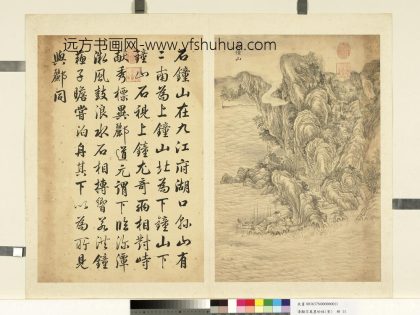 远方书画网-www.yfshuhua.com
石鐘山在九江府湖口縣山有
二南為上鐘山北為下鐘山下
鐘山石視上鐘尤奇兩相對峙
獻秀標異酈道元謂下臨深潭
微風鼓浪水石相搏響若洪鐘
蘇子瞻嘗泊舟其下以為所見
與酈同